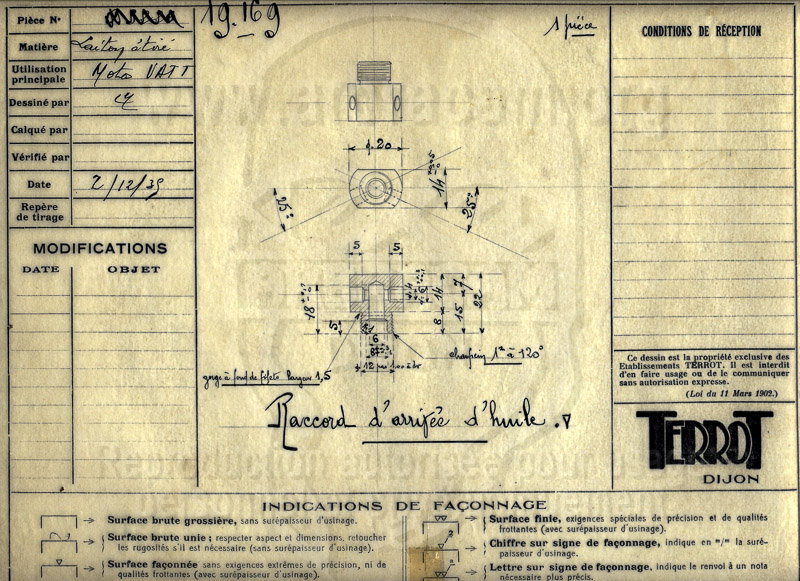 Pièce N°
19.169
1 pièce
Matière Laiton étiré
Utilisation principale Moto VATT
Dessiné par
Calqué par
Vérifié par
Date 2/12/39
Repère de tirage
MODIFICATIONS
DATE OBJET
CONDITIONS DE RÉCEPTION
φ.20
14
25°
25°
5 5
18
14
7
6
22
15
8
5
6
8
12 pas 100
chanfrein 1 à 120°
gorge à fond de filets largeur 1,5
Raccord d'arrivée d'huile.
Ce dessin est la propriété exclusive des
Etablissements TERROT. Il est interdit
d'en faire usage ou de le communiquer
sans autorisation expresse.
(Loi du 11 Mars 1902.)
TERROT
DIJON
INDICATIONS DE FAÇONNAGE
Surface brute grossière, sans surépaisseur d'usinage.
Surface brute unie; respecter aspect et dimensions, retoucher
les rugosités s'il est nécessaire (sans surépaisseur d'usinage).
Surface façonnée sans exigences extrêmes de précision, ni de
qualités frottantes (avec surépaisseur d'usinage).
Surface finie, exigences spéciales de précision et de qualités
frottantes (avec surépaisseur d'usinage).
Chiffre sur signe de façonnage, indique en m/m la suré-
paisseur d'usinage.
Lettre sur signe de façonnage, indique le renvoi à un nota
nécessaire plus précis.